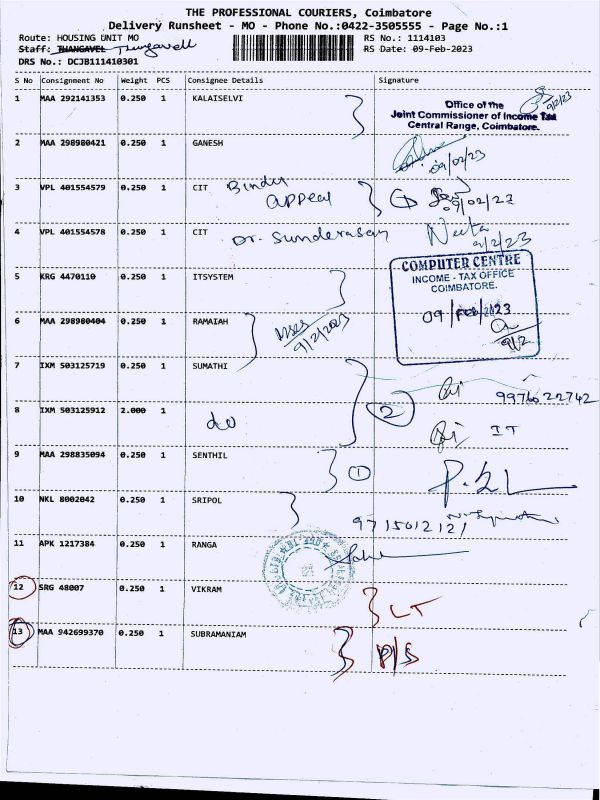 THE PROFESSIONAL COURIERS, Coimbatore
Delivery Runsheet - MO - Phone No.:0422-3505555 - Page No.:1
Route: HOUSING UNIT MO
RS No.: 1114103
Staff: THANGAVEL Thangavell
RS Date: 09-Feb-2023
DRS No.: DCJB111410301
S No Consignment No Weight PCS Consignee Details Signature
1 MAA 292141353 0.250 1 KALAISELVI
9/2/23
Office of the
Joint Commissioner of Income Tax
Central Range, Coimbatore.
2 MAA 298980421 0.250 1 GANESH
09/02/23
3 VPL 401554579 0.250 1 CIT Bindu
appeal
09/02/23
4 VPL 401554578 0.250 1 CIT Dr. Sunderasan
Neeta
9/2/23
COMPUTER CENTRE
INCOME - TAX OFFICE
COIMBATORE.
09 FEB 2023
9/2
5 KRG 4470110 0.250 1 ITSYSTEM
6 MAA 298980404 0.250 1 RAMAIAH
9/2/2023
7 IXM 503125719 0.250 1 SUMATHI
2
9976022742
8 IXM 503125912 2.000 1 do
IT
9 MAA 298835094 0.250 1 SENTHIL 1
10 NKL 8002042 0.250 1 SRIPOL
9715012121
11 APK 1217384 0.250 1 RANGA
12 SRG 48007 0.250 1 VIKRAM
LT
13 MAA 942699370 0.250 1 SUBRAMANIAM
P/S